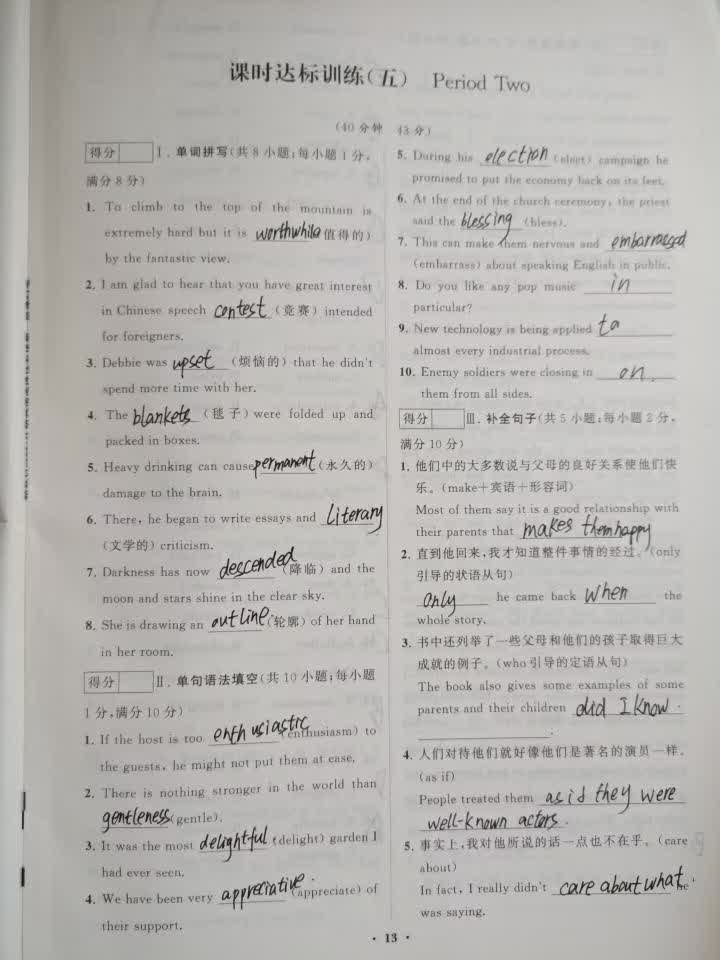 课时达标训练(五) Period Two
(40分钟 43分)
得分 Ⅰ.单词拼写(共8小题;每小题1分,
满分8分)
1. To climb to the top of the mountain is
extremely hard but it is worthwhila(值得的)
by the fantastic view.
2. I am glad to hear that you have great interest
in Chinese speech contest(竞赛) intended
for foreigners.
3. Debbie was upset(烦恼的) that he didn't
spend more time with her.
4. The blankets(毯子) were folded up and
packed in boxes.
5. Heavy drinking can cause permanent(永久的)
damage to the brain.
6. There, he began to write essays and Literary
(文学的) criticism.
7. Darkness has now descended(降临) and the
moon and stars shine in the clear sky.
8. She is drawing an outline(轮廓) of her hand
in her room.
得分 Ⅱ.单句语法填空(共10小题;每小题
1分,满分10分)
1. If the host is too enthusiastic(enthusiasm) to
the guests, he might not put them at ease.
2. There is nothing stronger in the world than
gentleness(gentle).
3. It was the most delightful(delight) garden I
had ever seen.
4. We have been very appreciative.(appreciate) of
their support.
5. During his election(elect) campaign he
promised to put the economy back on its feet.
6. At the end of the church ceremony, the priest
said the blessing(bless).
7. This can make them nervous and embarrassed
(embarrass) about speaking English in public.
8. Do you like any pop music in
particular?
9. New technology is being applied to
almost every industrial process.
10. Enemy soldiers were closing in on.
them from all sides.
得分 Ⅲ.补全句子(共5小题;每小题2分,
满分10分)
1. 他们中的大多数说与父母的良好关系使他们快
乐。(make+宾语+形容词)
Most of them say it is a good relationship with
their parents that makes them happy
2. 直到他回来,我才知道整件事情的经过。(only
引导的状语从句)
only he came back when the
whole story.
3. 书中还列举了一些父母和他们的孩子取得巨大
成就的例子。(who引导的定语从句)
The book also gives some examples of some
parents and their children did I know.
.
4. 人们对待他们就好像他们是著名的演员一样。
(as if)
People treated them as if they were
well-known actors.
5. 事实上,我对他所说的话一点也不在乎。(care
about)
In fact, I really didn't care about what he
was saying.
· 13 ·